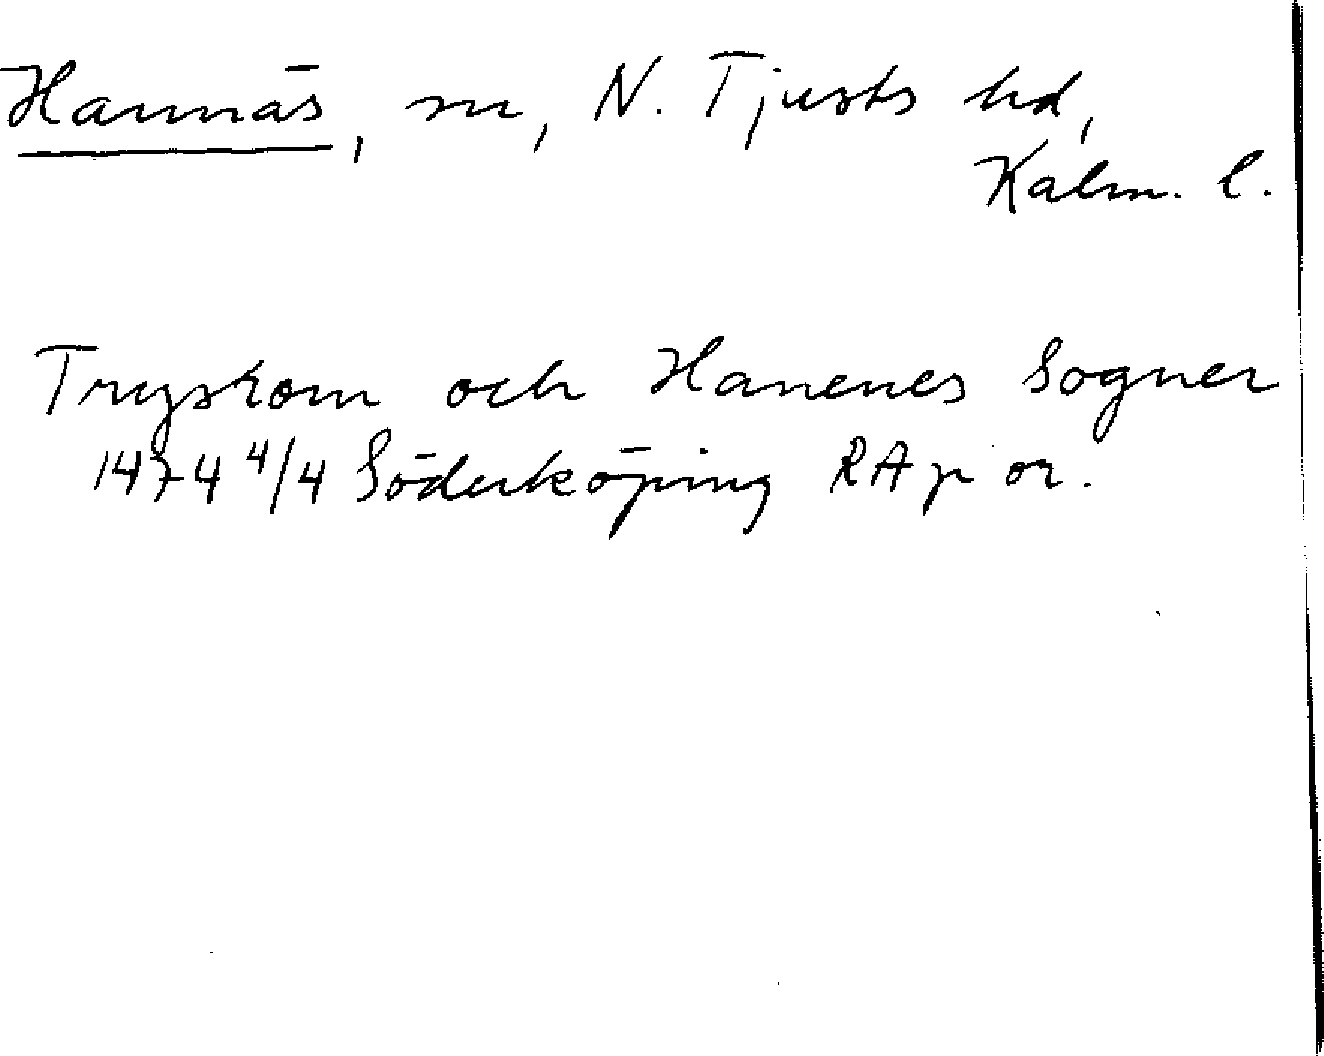 Hannäs, sn, N. Tjusts hd,
Kalm. l.
Tryskom och Hanenes Sogner
1474 4/4 Söderköping RAp or.